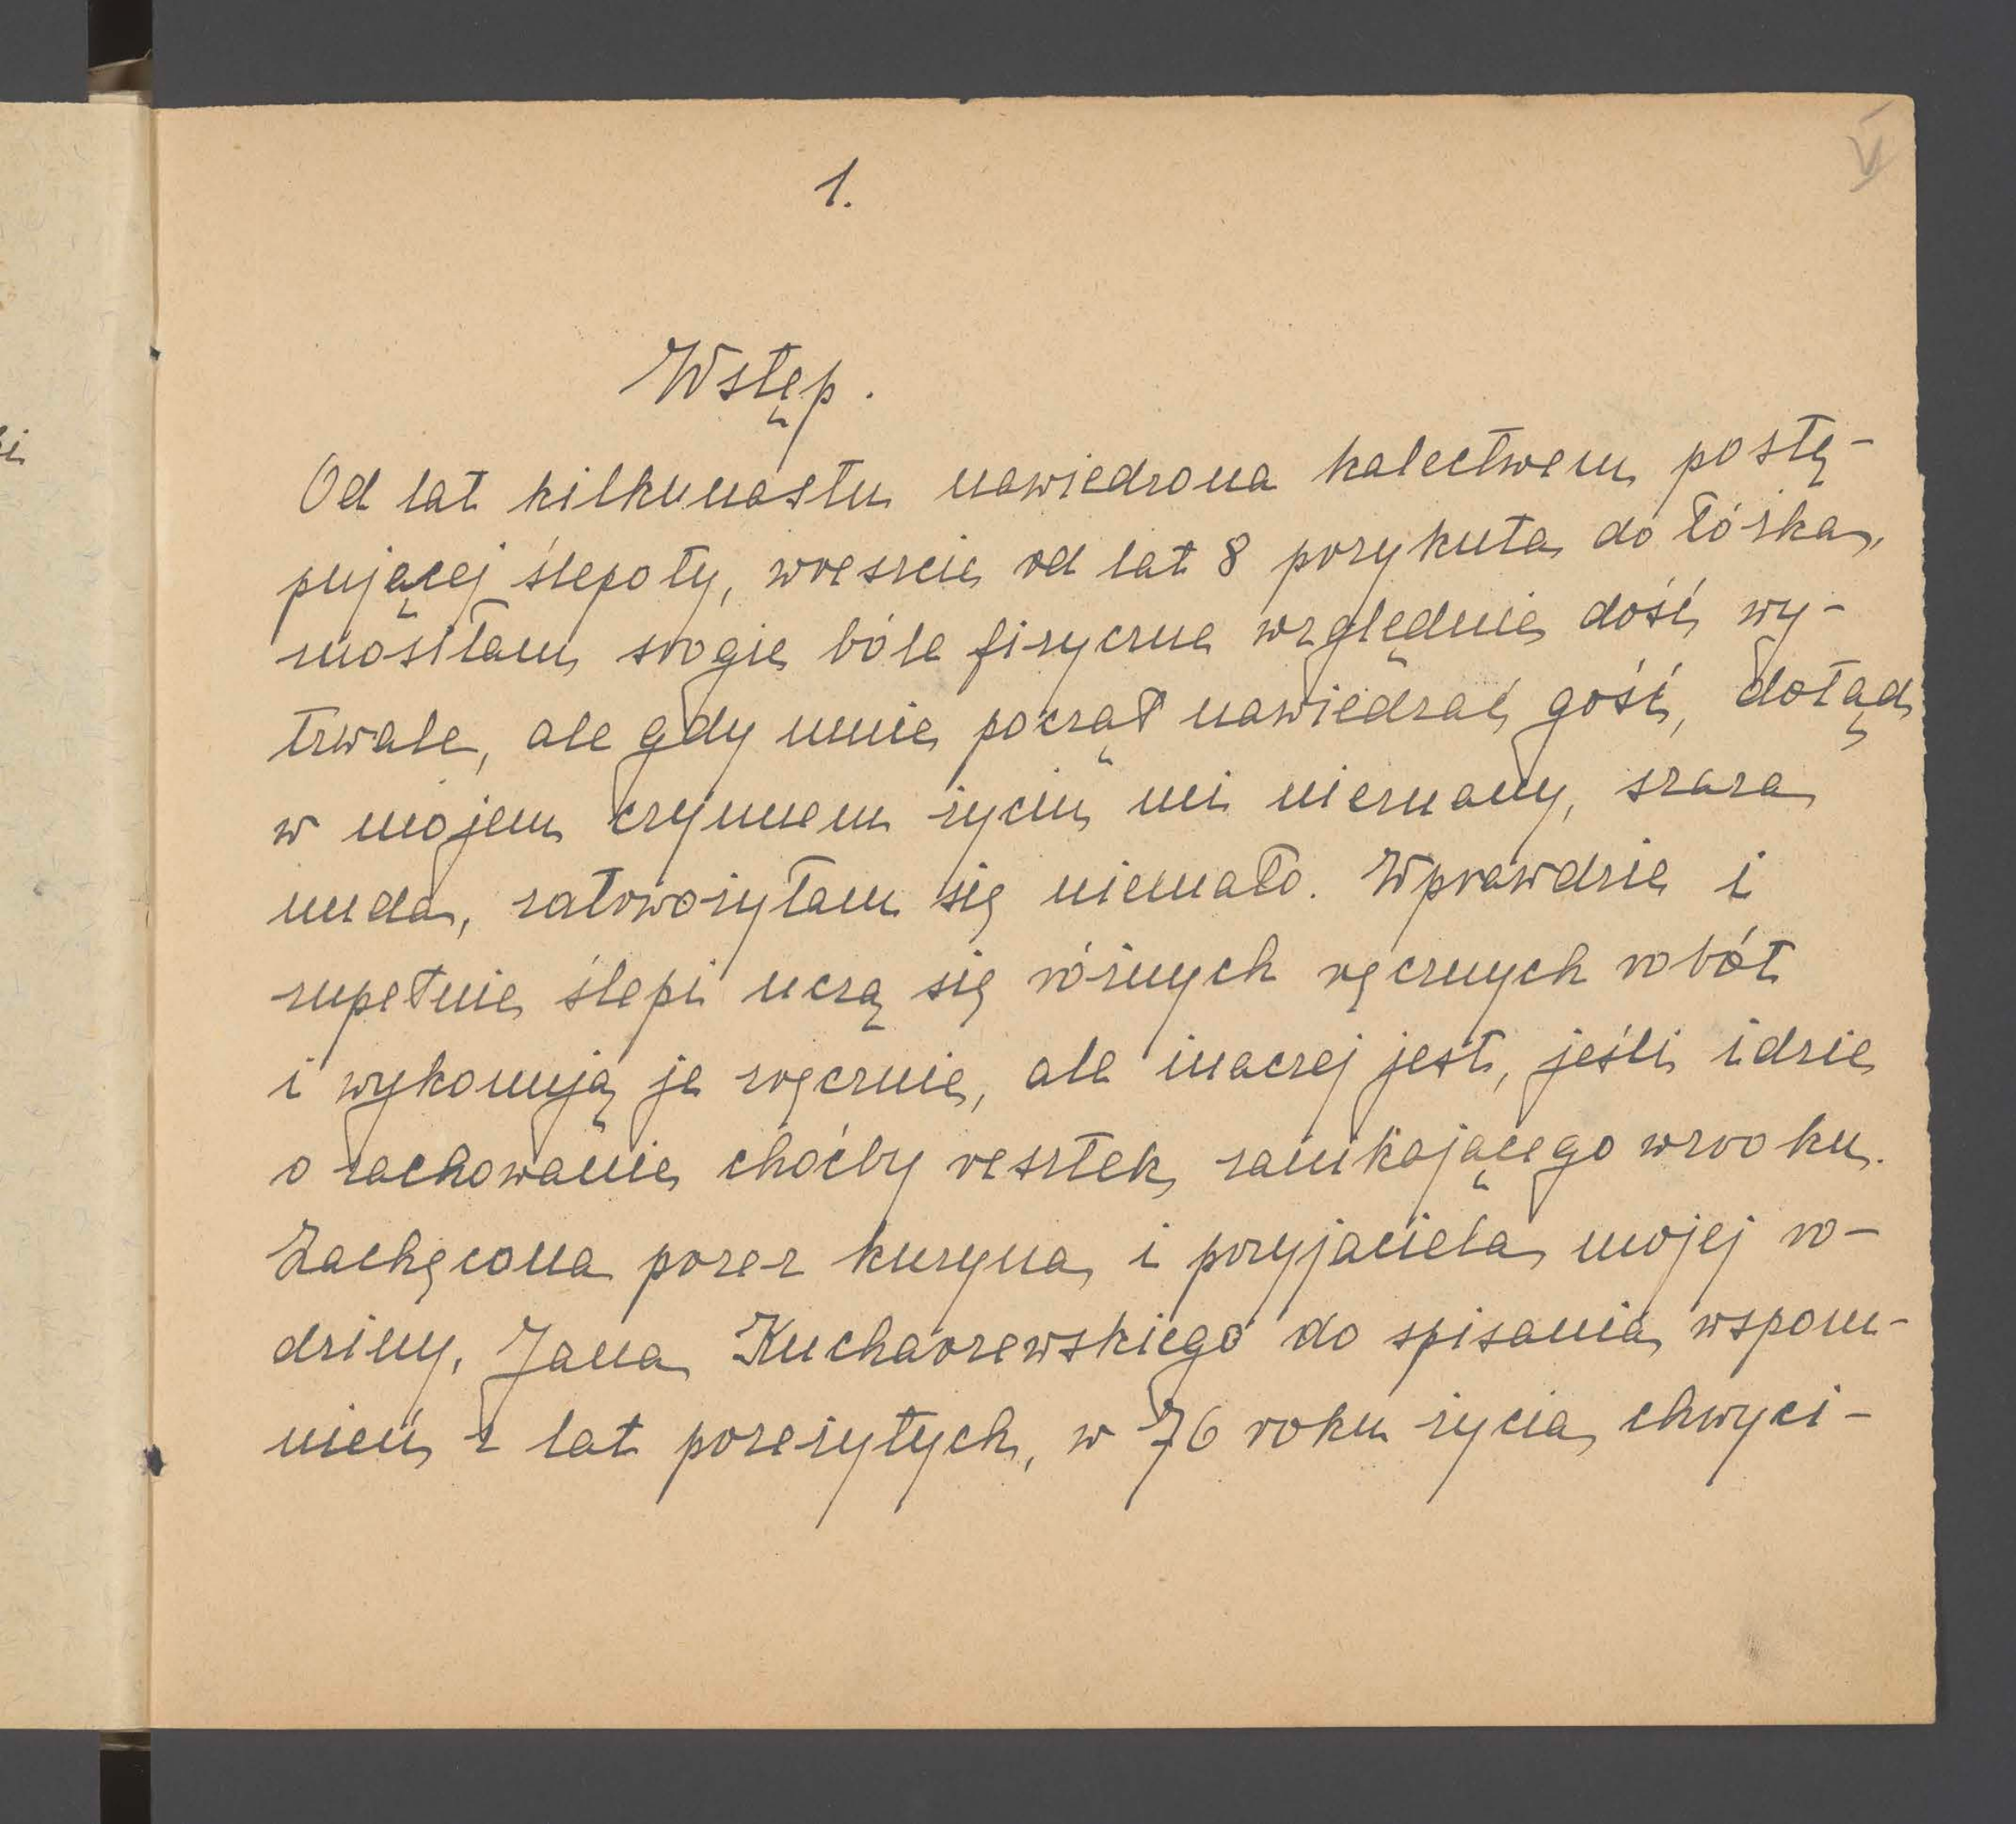 1.
Wstęp.
Od lat kilkunastu nawiedzona kalectwem postę-
pującej ślepoty, wreszcie od lat 8 przykuta do łóżka,
znosiłam srogie bóle fizyczne względnie dość wy-
trwale, ale gdy mnie począł nawiedzać gość, dotąd
w mojem czynnem życiu mi nieznany, szara
nuda, zatrwożyłam się niemało. Wprawdzie i
zupełnie ślepi uczą się różnych ręcznych robót
i wykonują je zręcznie, ale inaczej jest, jeśli idzie
o zachowanie choćby resztek zanikającego wzroku.
Zachęcona przez kuzyna i przyjaciela mojej ro-
dziny, Jana Kucharzewskiego do spisania wspom-
nień z lat przeżytych, w 76 roku życia chwyci-